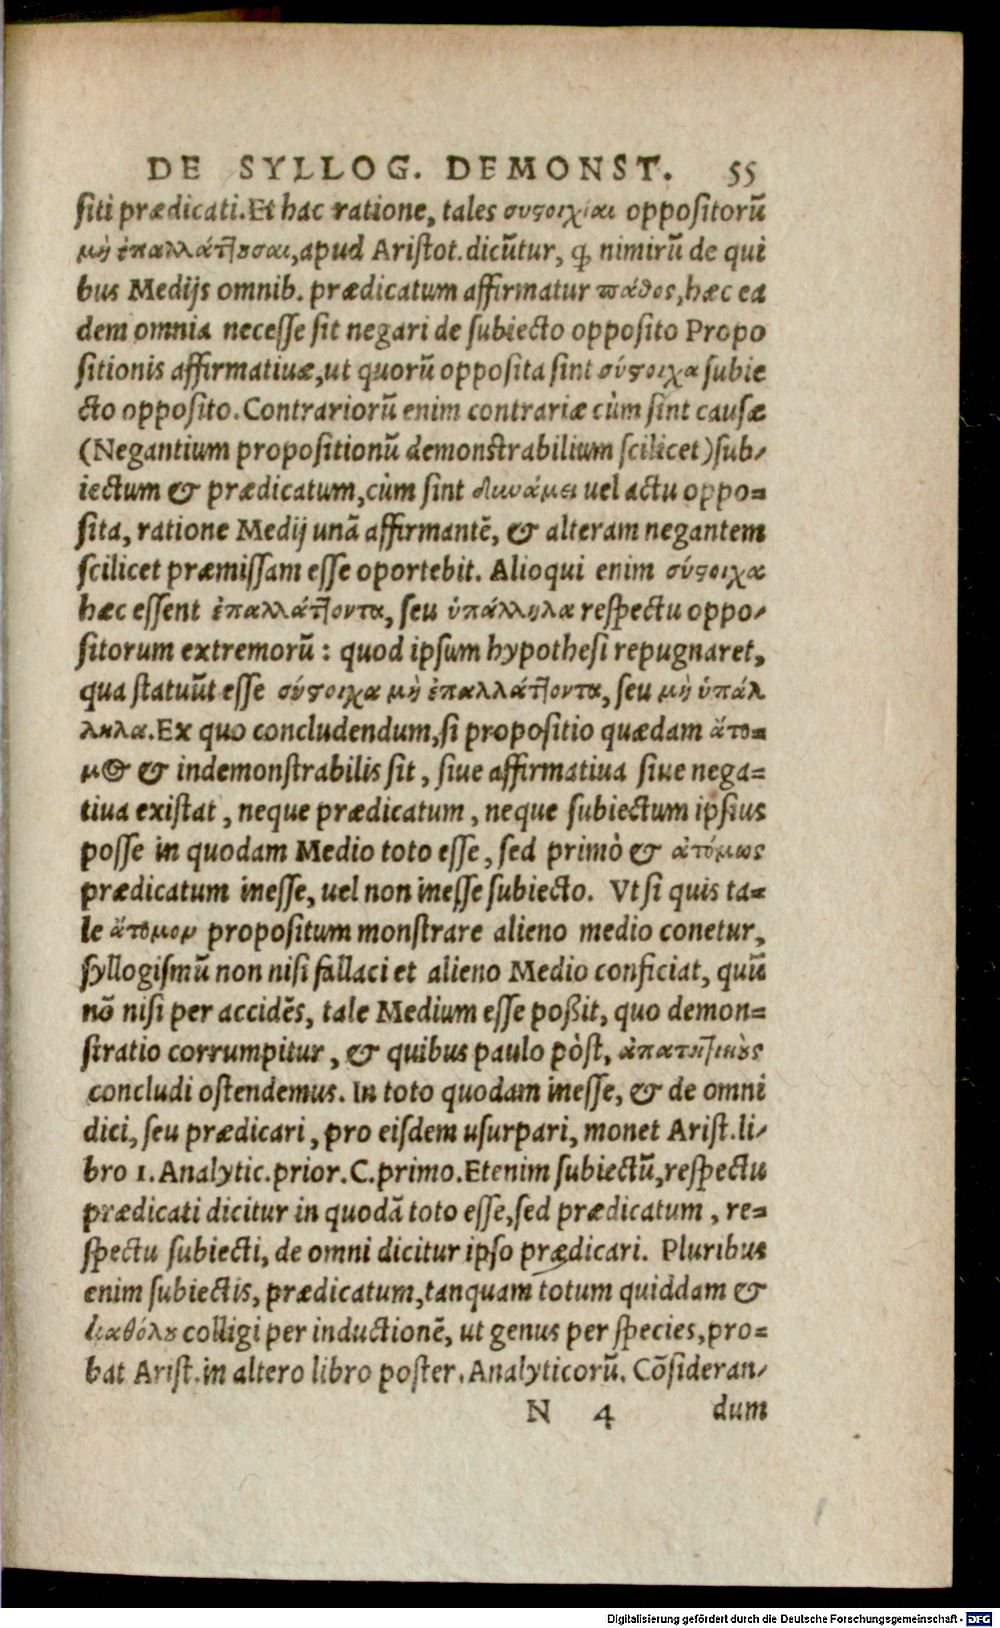 DE SYLLOG. DEMONST. 55
siti prædicati. Et hac ratione, tales συστοιχίαι oppositorũ
μὴ ἐπαλλάττουσαι, apud Aristot. dicũtur, ꝙ nimirũ de qui
bus Medijs omnib. prædicatum affirmatur πάθος, hæc ea
dem omnia necesse sit negari de subiecto opposito Propo
sitionis affirmatiuæ, ut quorũ opposita sint σύστοιχα subie
cto opposito. Contrariorũ enim contrariæ cùm sint causæ
(Negantium propositionũ demonstrabilium scilicet) sub-
iectum & prædicatum, cùm sint δυνάμει uel actu oppo=
sita, ratione Medij unã affirmantẽ, & alteram negantem
scilicet præmissam esse oportebit. Alioqui enim σύστοιχα
hæc essent ἐπαλλάττοντα, seu ὑπάλληλα respectu oppo-
sitorum extremorũ: quod ipsum hypothesi repugnaret,
qua statuũt esse σύστοιχα μὴ ἐπαλλάττοντα, seu μὴ ὑπάλ
ληλα. Ex quo concludendum, si propositio quædam ἄτο=
μος & indemonstrabilis sit, siue affirmatiua siue nega=
tiua existat, neque prædicatum, neque subiectum ipsius
posse in quodam Medio toto esse, sed primò & ἀτόμως
prædicatum inesse, uel non inesse subiecto. Vt si quis ta=
le ἄτομον propositum monstrare alieno medio conetur,
syllogismũ non nisi fallaci et alieno Medio conficiat, quũ
nõ nisi per accidẽs, tale Medium esse poßit, quo demon=
stratio corrumpitur, & quibus paulo pòst, ἀπατητικῶς
concludi ostendemus. In toto quodam inesse, & de omni
dici, seu prædicari, pro eisdem usurpari, monet Arist. li-
bro 1. Analytic. prior. C. primo. Etenim subiectũ, respectu
prædicati dicitur in quodã toto esse, sed prædicatum, re=
spectu subiecti, de omni dicitur ipso prædicari. Pluribus
enim subiectis, prædicatum, tanquam totum quiddam &
καθόλου colligi per inductionẽ, ut genus per species, pro=
bat Arist. in altero libro poster. Analyticorũ. Cõsideran-
N 4 dum
Digitalisierung gefördert durch die Deutsche Forschungsgemeinschaft - DFG